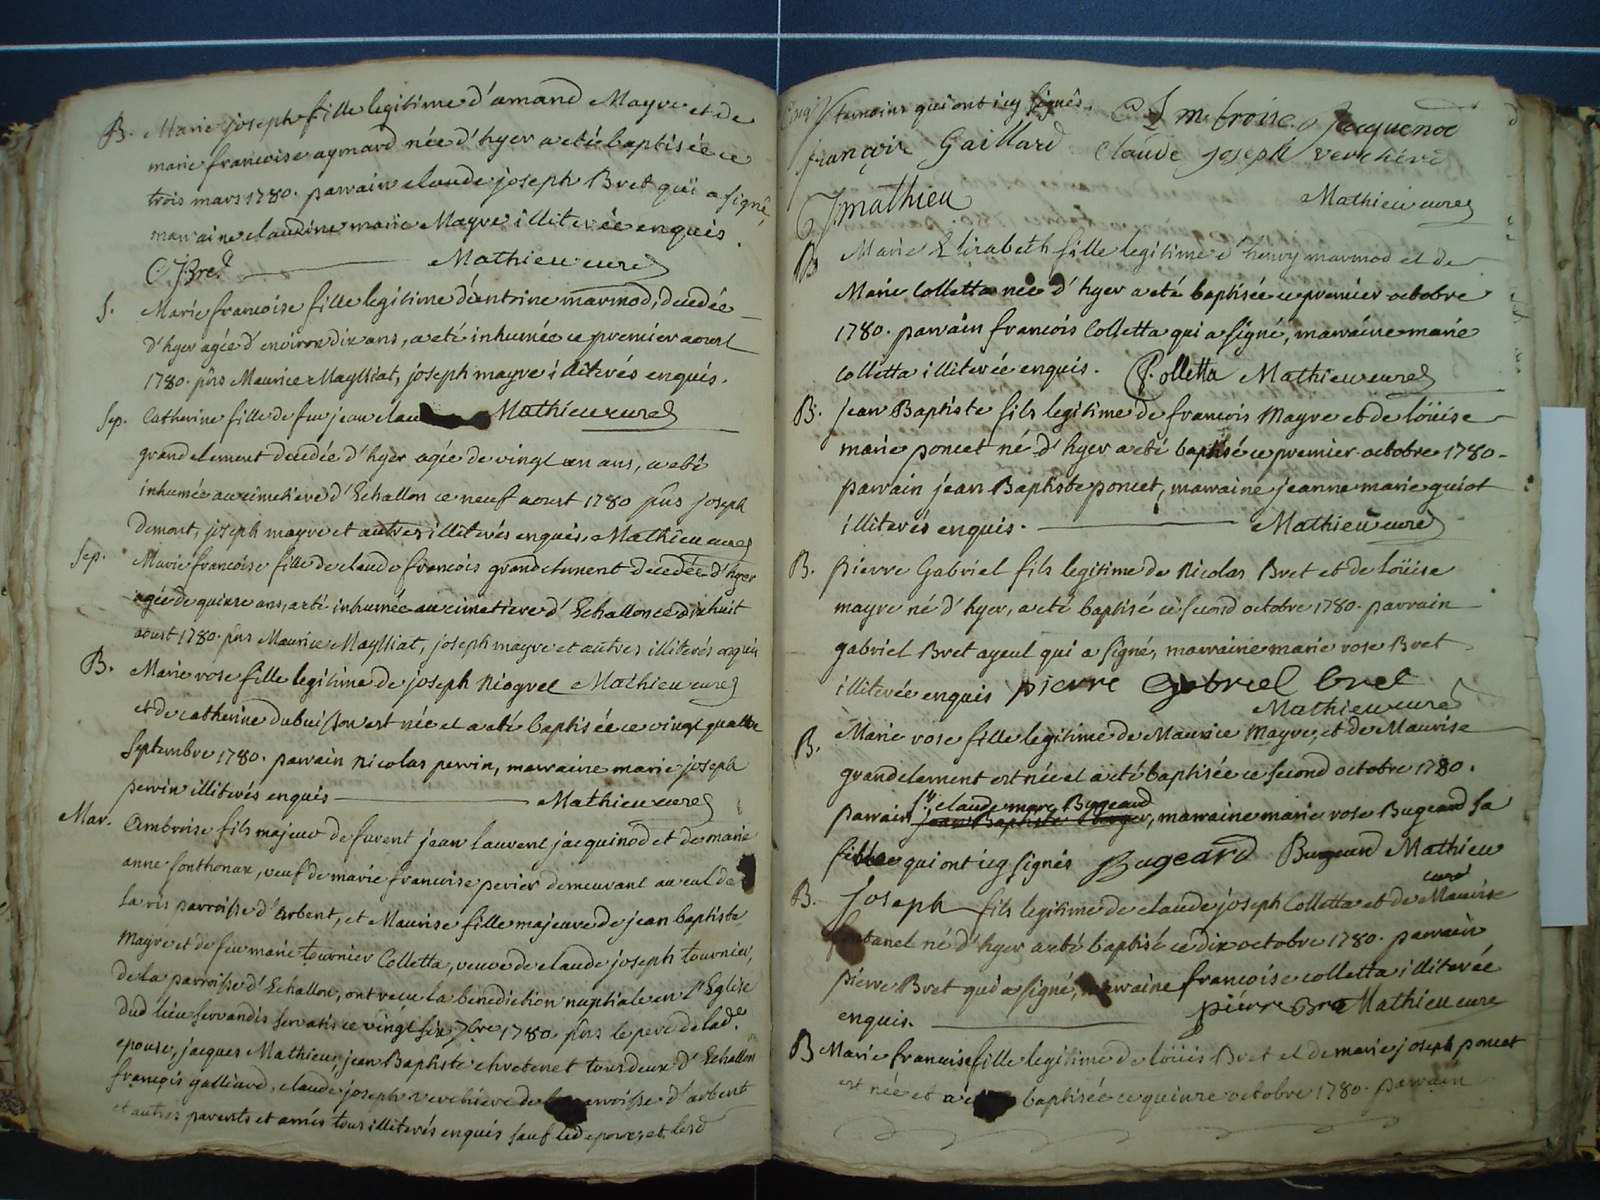 B. Marie joseph fille legitime d'amand Mayre et de
marie francoise aymard née d'hyer a eté baptisée ce
trois mars 1780. parrain claude joseph Bret qui a signé,
marraine claudine marie Mayre illiterée enquis.
C. J. Bret Mathieu curé
S. Marie francoise fille legitime d'antoine marmod, decedée
d'hyer agée d'environ dix ans, a eté inhumée ce premier aoust
1780. pñs Maurice Maylliat, joseph mayre illiterés enquis.
Sep. Catherine fille de feu jean clau Mathieu curé
grandclement decedée d'hyer agée de vingt un ans, a eté
inhumée au cimetiere d'Echallon ce neuf aoust 1780 pñs joseph
demont, joseph mayre et autres illiterés enquis. Mathieu curé
Sep. Marie francoise fille de claude francois grandclement decedée d'hyer
agée de quinze ans, a eté inhumée au cimetiere d'Echallon ce dixhuit
aoust 1780. pñs Maurice Maylliat, joseph mayre et autres illiterés enquis
B. Marie rose fille legitime de joseph Niogret Mathieu curé
et de catherine dubuisson est née et a eté baptisée ce vingt quatre
Septembre 1780. parrain Nicolas perrin, marraine marie joseph
perrin illiterés enquis Mathieu curé
Mar. Ambroise fils majeur de furent jean laurent jacquinod et de marie
anne sonthonax, veuf de marie francoise perier demeurant au cul de
la vis parroisse d'Arbent, et Maurise fille majeure de jean baptiste
Mayre et de feu marie tournier Colletta, veuve de claude joseph tournier,
de la parroisse d'Echallon, ont recu la benediction nuptiale en l'Eglise
dud lieu servandis servatis ce vingt six 7bre 1780. pñs le pere de lade.
epouse, jacques Mathieu, jean Baptiste chretenet tous deux d'Echallon
françois galliard, claude joseph verchiere de la parroisse d'arbent
et autres parents et amis tous illiterés enquis sauf led epoux, et lesd
temoins qui ont icy signés. Ambroise Jacquenod
françois Gaillard Claude joseph verchére
J mathieu Mathieu curé
B. Marie Elizabeth fille legitime d'henry marmod et de
Marie Colletta née d'hyer a eté baptisée ce premier octobre
1780. parrain francois Colletta qui a signé, marraine marie
colletta illiterée enquis. F. Colletta Mathieu curé
B. jean Baptiste fils legitime de francois Mayre et de loüise
marie poncet né d'hyer a eté baptisé ce premier octobre 1780.
parrain jean Baptiste poncet, marraine jeanne marie guiot
illiterés enquis. Mathieu curé
B. pierre Gabriel fils legitime de Nicolas Bret et de loüise
mayre né d'hyer, a eté baptisé ce second octobre 1780. parrain
gabriel Bret ayeul qui a signé, marraine marie rose Bret
illiterée enquis pierre Gabriel bret
Mathieu curé
B. Marie rose fille legitime de Maurice Mayre, et de Maurise
grandclement est née et a eté baptisée ce second octobre 1780.
sr. claude marc Bugeard
parrain jean Baptiste, marraine marie rose Bugeard sa
fille qui ont icy signés Bugeard Bugeard Mathieu
curé
B. Joseph fils legitime de claude joseph Colletta et de Maurise
né d'hyer a eté baptisé ce dix octobre 1780. parrain
pierre Bret qui a signé, marraine francoise colletta illiterée
enquis. pierre Bret Mathieu curé
B Marie francoise fille legitime de loüis Bret et de marie joseph poncet
est née et a baptisée ce quinze octobre 1780. parrain